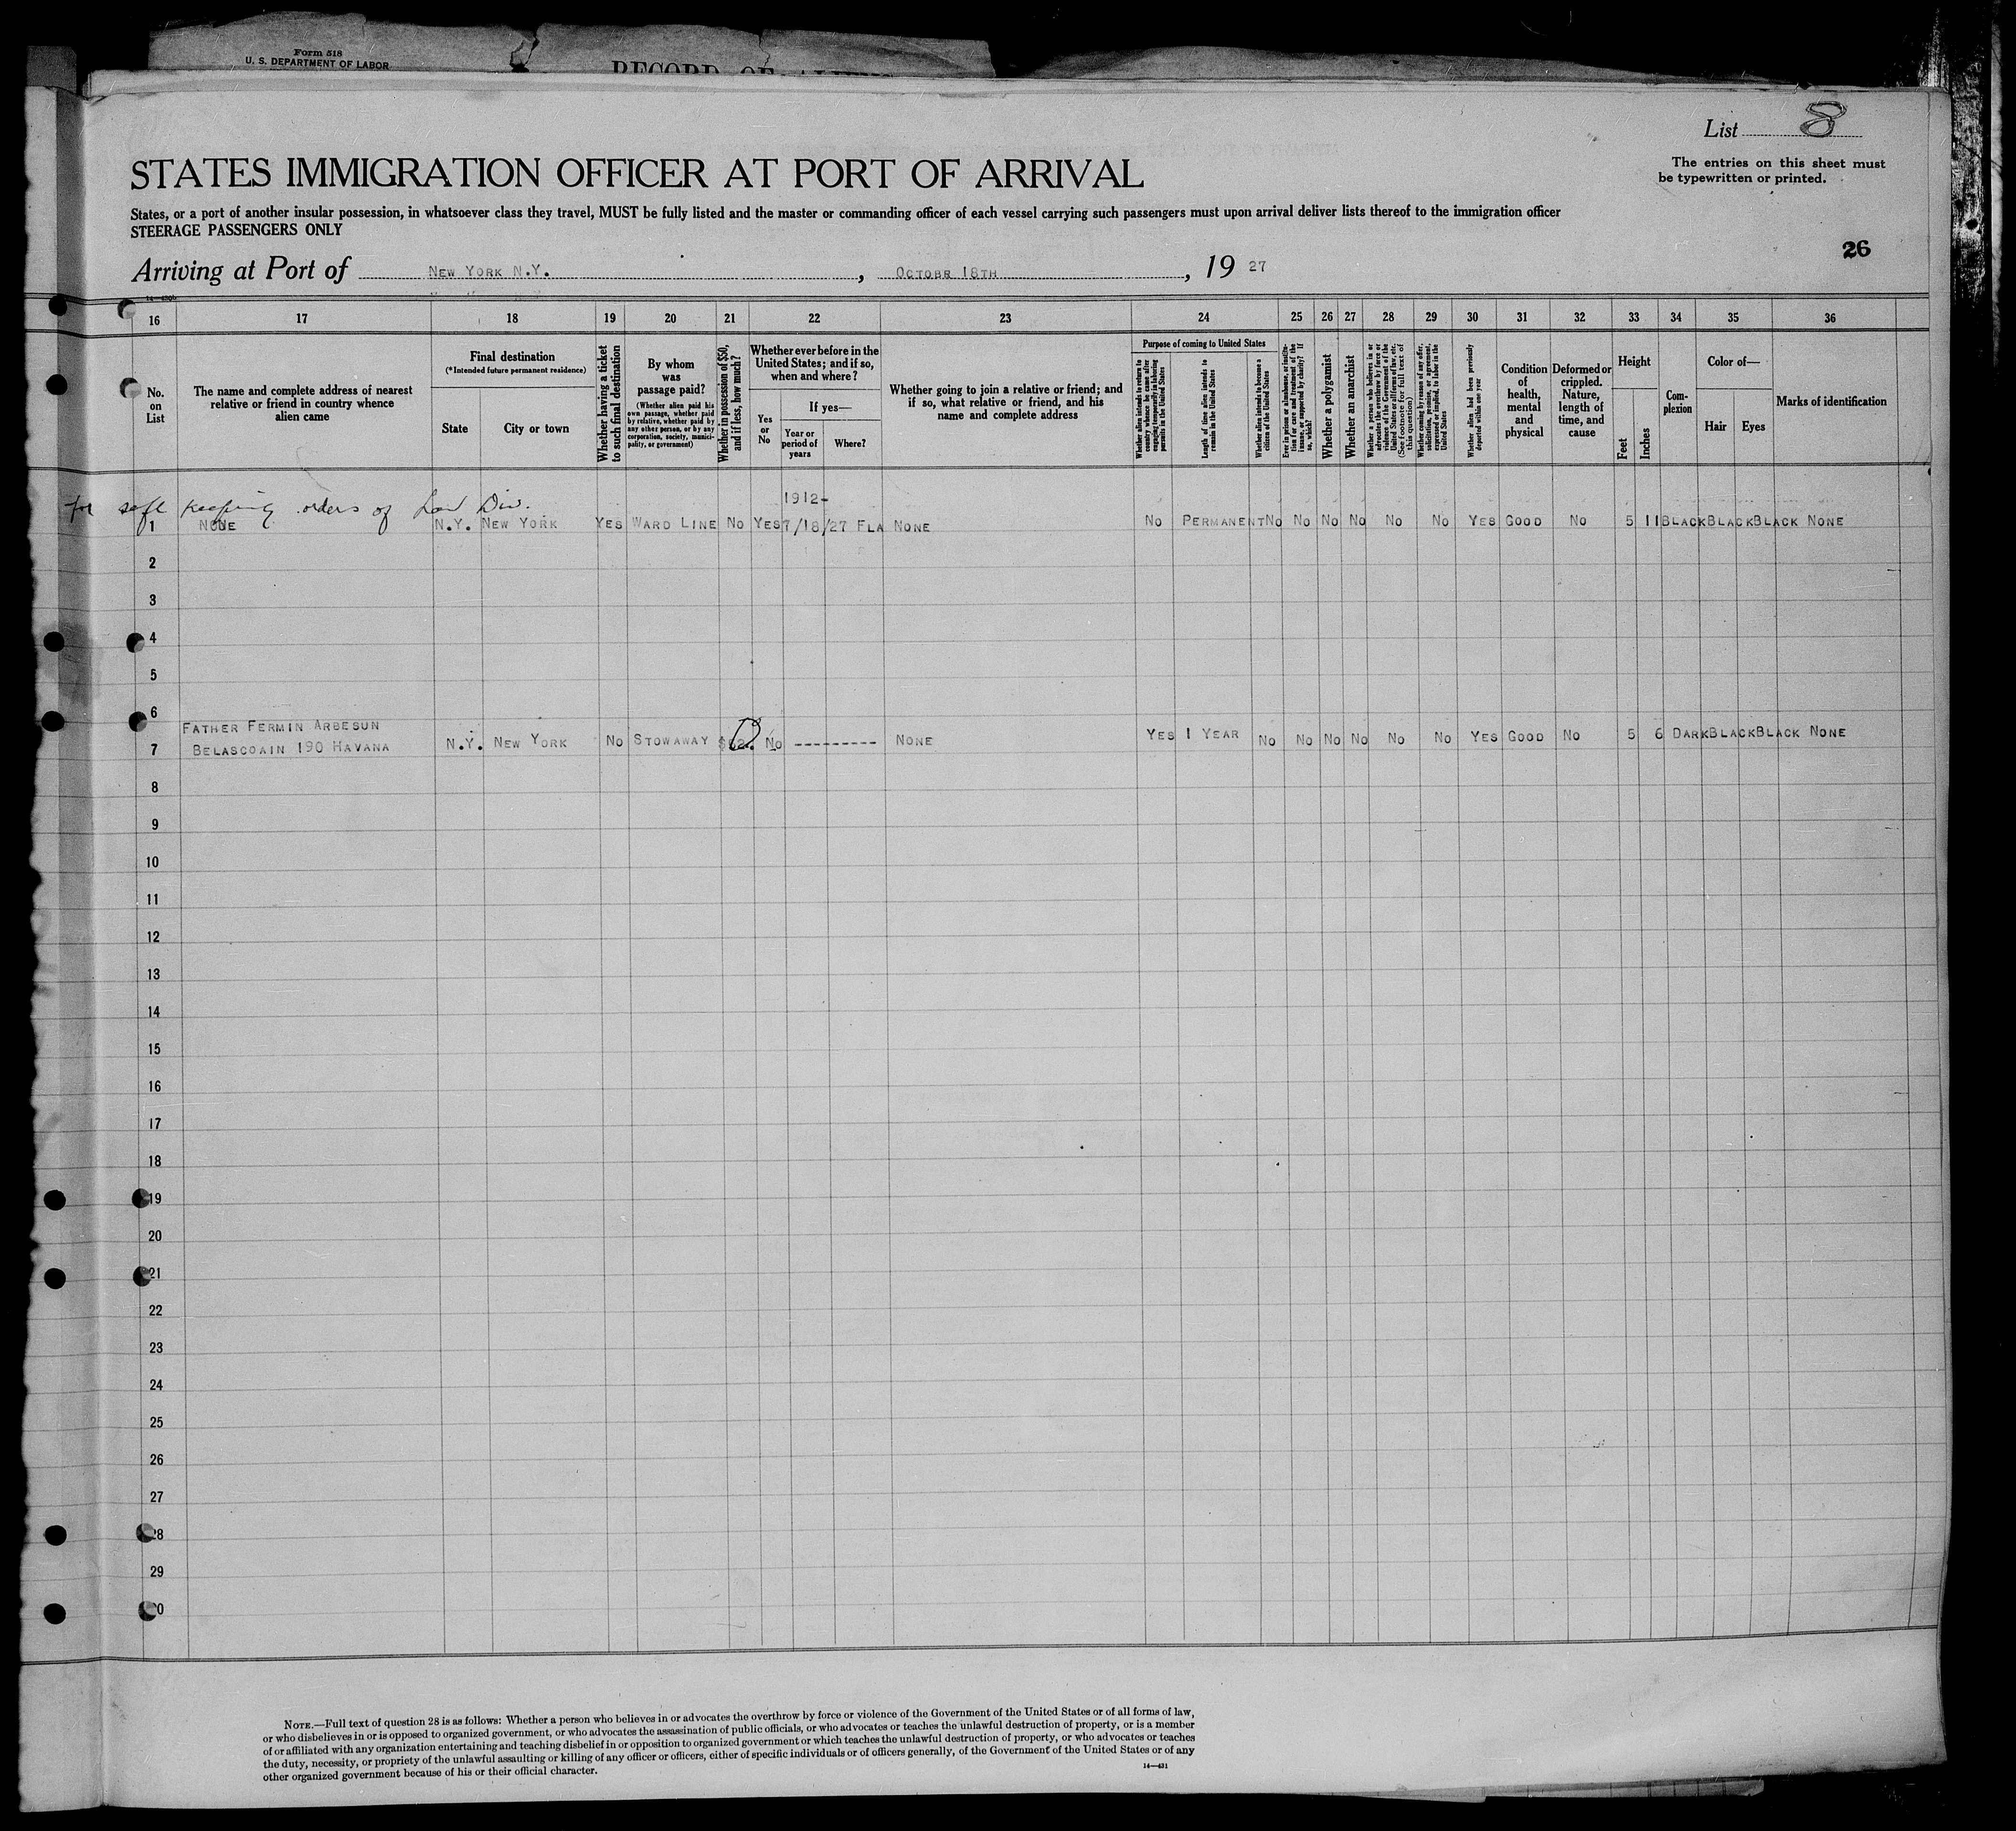 Form 518
U. S. DEPARTMENT OF LABOR
RECORD OF ALIENS
List 8
The entries on this sheet must
be typewritten or printed.
STATES IMMIGRATION OFFICER AT PORT OF ARRIVAL
States, or a port of another insular possession, in whatsoever class they travel, MUST be fully listed and the master or commanding officer of each vessel carrying such passengers must upon arrival deliver lists thereof to the immigration officer
STEERAGE PASSENGERS ONLY
26
Arriving at Port of NEW YORK N.Y. , OCTOBR 18TH , 19 27
16 17 18 19 20 21 22 23 24 25 26 27 28 29 30 31 32 33 34 35 36
No. on List
The name and complete address of nearest
relative or friend in country whence
alien came
Final destination
(*Intended future permanent residence)
State
City or town
Whether having a ticket
to such final destination
By whom
was
passage paid?
(Whether alien paid his
own passage, whether paid
by relative, whether paid by
any other person, or by any
corporation, society, munici-
pality, or government)
Whether in possession of $50,
and if less, how much?
Whether ever before in the
United States; and if so,
when and where?
Yes
or
No
If yes—
Year or
period of
years
Where?
Whether going to join a relative or friend; and
if so, what relative or friend, and his
name and complete address
Purpose of coming to United States
Whether alien intends to return to
country whence he came after
engaging temporarily in laboring
pursuits in the United States
Length of time alien intends to
remain in the United States
Whether alien intends to become a
citizen of the United States
Ever in prison or almshouse, or institu-
tion for care and treatment of the
insane, or supported by charity? If
so, which?
Whether a polygamist
Whether an anarchist
Whether a person who believes in or
advocates the overthrow by force or
violence of the Government of the
United States or all forms of law, etc.
(See footnote for full text of
this question)
Whether coming by reason of any offer,
solicitation, promise, or agreement,
expressed or implied, to labor in the
United States
Whether alien had been previously
deported within one year
Condition
of
health,
mental
and
physical
Deformed or
crippled.
Nature,
length of
time, and
cause
Height
Feet
Inches
Com-
plexion
Color of—
Hair
Eyes
Marks of identification
for safe keeping orders of Law Div.
1912-
1 NONE N.Y. NEW YORK YES WARD LINE NO YES 7/18/27 FLA NONE NO PERMANENT NO NO NO NO NO NO YES GOOD NO 5 11 BLACK BLACK BLACK NONE
2
3
4
5
6
FATHER FERMIN ARBESUN
7 BELASCOAIN 190 HAVANA N.Y. NEW YORK NO STOWAWAY NO --------- NONE YES 1 YEAR NO NO NO NO NO NO YES GOOD NO 5 6 DARK BLACK BLACK NONE
8
9
10
11
12
13
14
15
16
17
18
19
20
21
22
23
24
25
26
27
28
29
30
NOTE.—Full text of question 28 is as follows: Whether a person who believes in or advocates the overthrow by force or violence of the Government of the United States or of all forms of law,
or who disbelieves in or is opposed to organized government, or who advocates the assassination of public officials, or who advocates or teaches the unlawful destruction of property, or is a member
of or affiliated with any organization entertaining and teaching disbelief in or opposition to organized government or which teaches the unlawful destruction of property, or who advocates or teaches
the duty, necessity, or propriety of the unlawful assaulting or killing of any officer or officers, either of specific individuals or of officers generally, of the Government of the United States or of any
other organized government because of his or their official character.
14—431